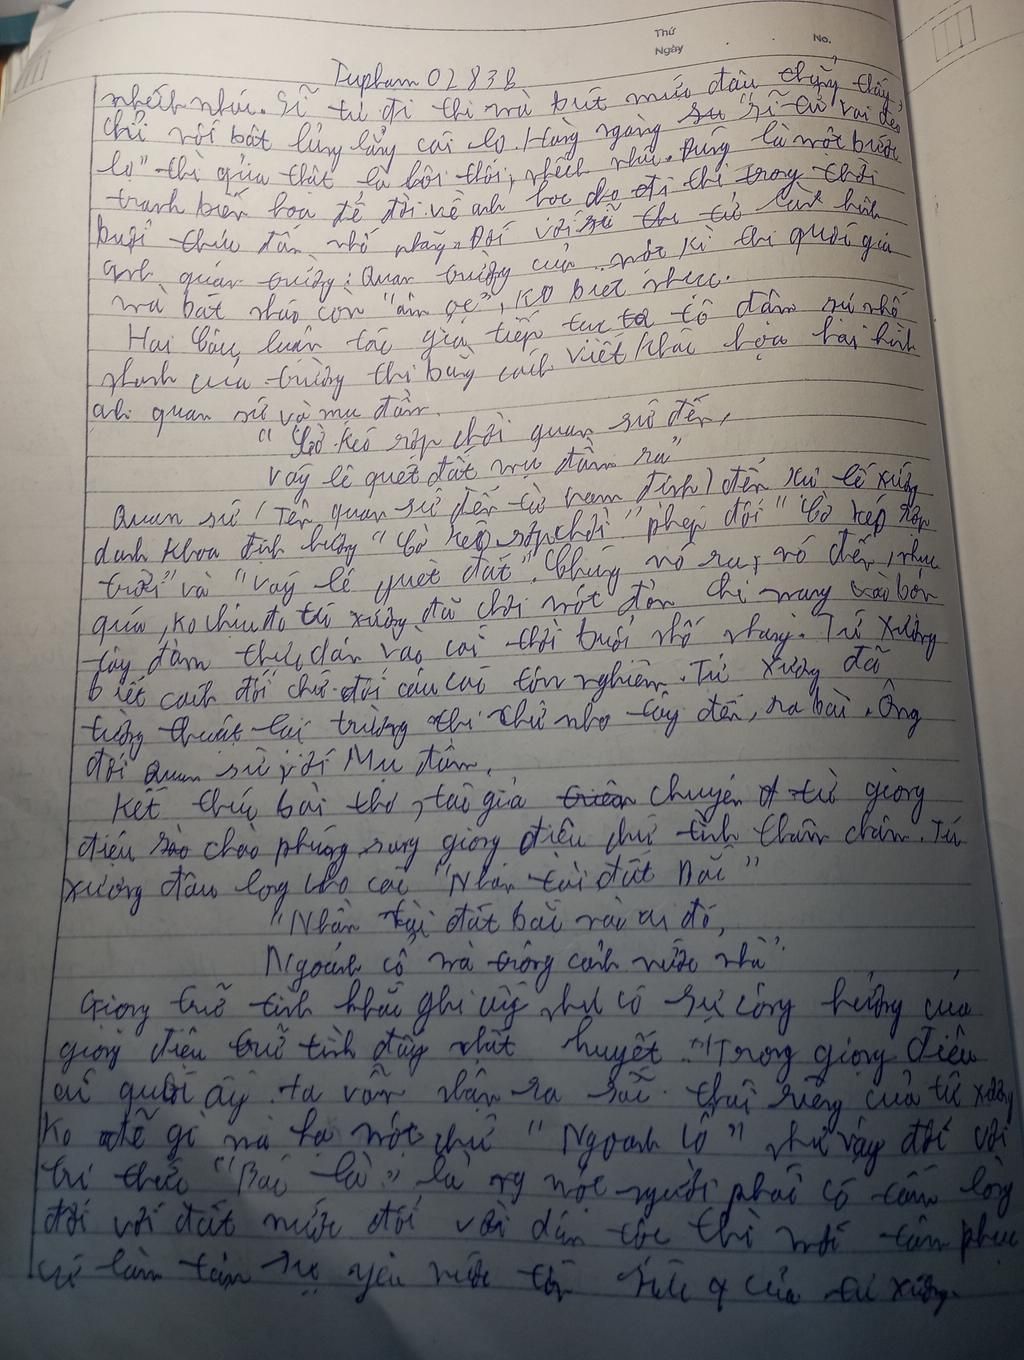 Thứ
Ngày
No.
Tupham 0283B
nhếch nhác. Sĩ tử đi thi mà bút mực đâu chẳng thấy,
chỉ rồi bật lủng lẳng cái lọ. Hàng ngàng sự "sĩ tử vai đeo
lọ" thì qủa thât là bôi thôi, nhếch nhác. Đúng là một bức
tranh biếm họa để đời về anh học đi thi trong thời
buổi thức dân nhố nhăng. Đối với sĩ thì tử là hình
anh quan trường: Quan trường của một kì thi quốc gia
mà bát nháo còn "ậm oẹ", ko biết nhục.
Hai câu luân tác giả tiếp tục tô đâm sự nhố
nhanh của trường thi bằng cách viết khái họa hai hình
anh quan sứ và mụ đầm.
"Cờ kéo rợp chời quan sứ đến,
Váy lê quét đất mụ đầm ra"
Quan sứ (Tên quan sứ đến từ nam đinh) đến xu lê xướng
danh khoa "Cờ kéo rợp chời" phep đối "Cờ kéo rợp
trời" và "váy lê quet đất". Chúng nó ra, nó đến, nhục
quá, ko chịu đc tú xương đã chơi một đòn chi mang vào bọn
tây đầm thực dân vào cái thời buổi nhố nhang. Tú Xương
biết cach đối chữ đối câu cái tôn nghiêm. Tú xương đã
tường thuât lai trường thi chữ nho tây đến, ra bài. Ông
đối Quan sứ với Mụ đầm.
Kết thúc bài thơ, tác giả chuyên từ giong
điệu chào phúng sang giong điệu chữ tình thâm chầm. Tú
xương đâu long cho cái "Nhân tài đất Bắc"
"Nhân tài đất bắc nào ai đó,
Ngoảnh cổ mà trông cảnh nước nhà"
Giong trữ tình khắc ghi cũg như có sự công hưởng của
giong điêu trữ tình đầy nhất huyết. Trong giong điêu
ấy ta vẫn nhận ra sắc thái riêng của tú xương
Ko dễ gì mà hạ một chữ "Ngoanh cổ" như vậy đối với
tri thức "Bắc hà" là một người phải có tấm lòng
đối với đất nước đối với dân tôc thì mới
làm yêu nước của tú xương